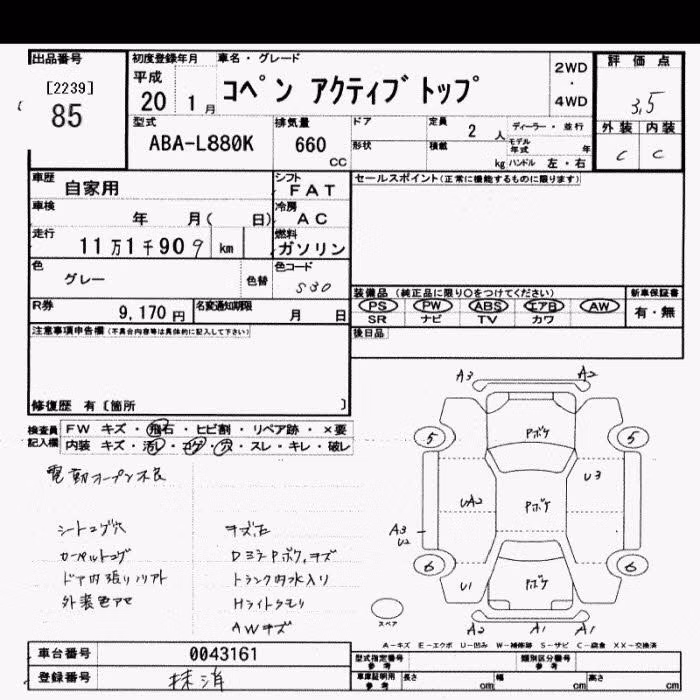 出品番号
[2239]
85
初度登録年月
平成
20 1 月
車名・グレード
コペン アクティブトップ
2WD
・
4WD
評価点
3.5
外装 内装
C C
型式
ABA-L880K
排気量
660
CC
ドア
形状
定員
2 人
積載
kg
ディーラー・並行
モデル
年式 年
ハンドル 左・右
車歴
自家用
シフト
FAT
車検
年 月( 日)
冷房
AC
走行
11万1千909 km
燃料
ガソリン
色
グレー
色替
色コード
S30
R券
9,170円
名変通知期限
月 日
セールスポイント(正常に機能するものに限ります)
装備品 (純正品に限り○をつけてください)
PS PW ABS エアB AW
SR ナビ TV カワ
新車保証書
有・無
後日品
注意事項申告欄(不具合内容等は具体的に記入して下さい)
修復歴 有〔箇所 〕
検査員
記入欄
FW キズ・飛石・ヒビ割・リペア跡・×要
内装 キズ・汚レ・コゲ・穴・スレ・キレ・破レ
電動オープン不良
シートコゲ穴
カーペットコゲ
ドア内張リソリアト
外装色アセ
キズ凹
Dミラーボケ,キズ
トランク内水入リ
Hライトクモリ
AWキズ
A3 A2
5 5
Pボケ
U3
UA2
Pボケ
A3
U2
6 6
U1
Pボケ
A2 A1 A1
スペア
A−キズ E−エクボ U−凹み W−補修跡 S−サビ C−腐食 XX−交換済
車台番号
0043161
登録番号
抹消
型式指定番号
参考
類別区分番号
参考
車庫証明用
参考
長さ cm
幅 cm
高さ cm